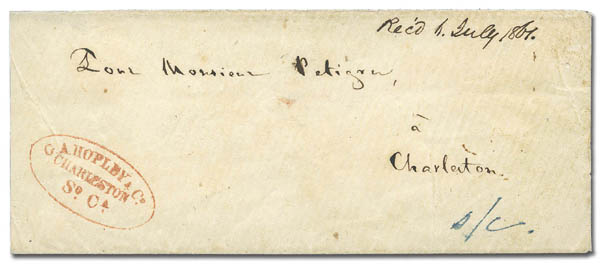 Rec'd 1. July 1861.
Pour Monsieur Petigru,
à
Charleston.
G. A. HOPLEY & Co
CHARLESTON
So. Ca.
s/c.